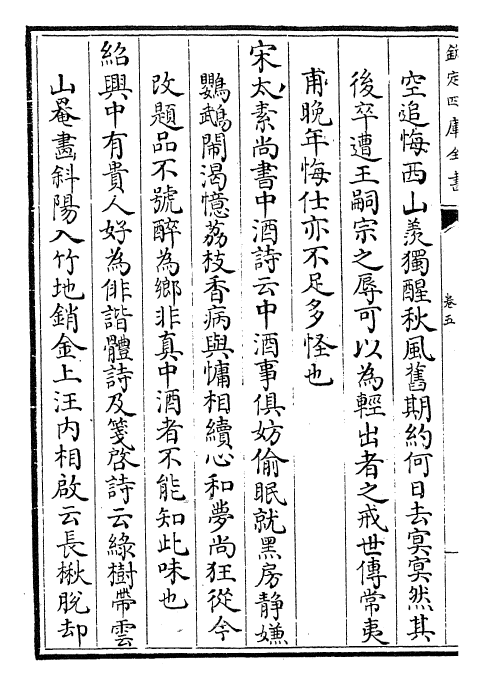 欽定四庫全書
卷五
空追悔西山羨獨醒秋風舊期約何日去冥冥然其
後卒遭王嗣宗之辱可以為輕出者之戒世傳常夷
甫晚年悔仕亦不足多怪也
宋太素尚書中酒詩云中酒事俱妨偷眠就黑房静嫌
鸚鵡鬧渴憶荔枝香病與慵相續心和夢尚狂從今
改題品不號醉為鄉非真中酒者不能知此味也
紹興中有貴人好為俳諧體詩及箋啓詩云綠樹帶雲
山罨畫斜陽入竹地銷金上汪内相啟云長楸脱却